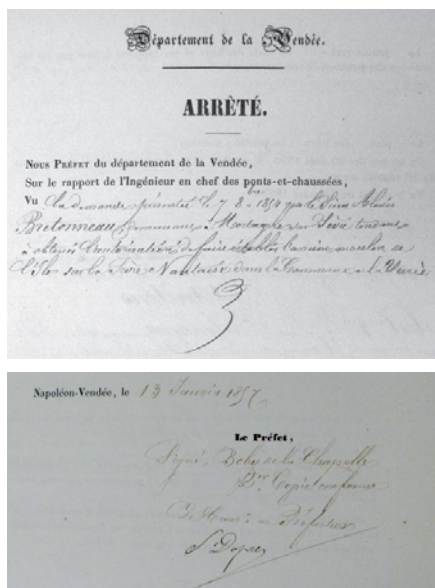 Département de la Vendée.
ARRÊTÉ.
Nous Préfet du département de la Vendée,
Sur le rapport de l'Ingénieur en chef des ponts-et-chaussées,
Vu la demande présentée le 7 8bre 1854 par le Sieur Aimée
Bretonneau, demeurant à Mortagne sur Sèvre tendant
à obtenir l'autorisation de faire établir l'ancien moulin de
l'Ile sur la Sèvre Nantaise dans la Commune de la Verrie
Napoléon-Vendée, le 13 Janvier 1857
Le Préfet,
Signé, Boby de la Chapelle
Pr Copie conforme
Le Cons. de Préfecture